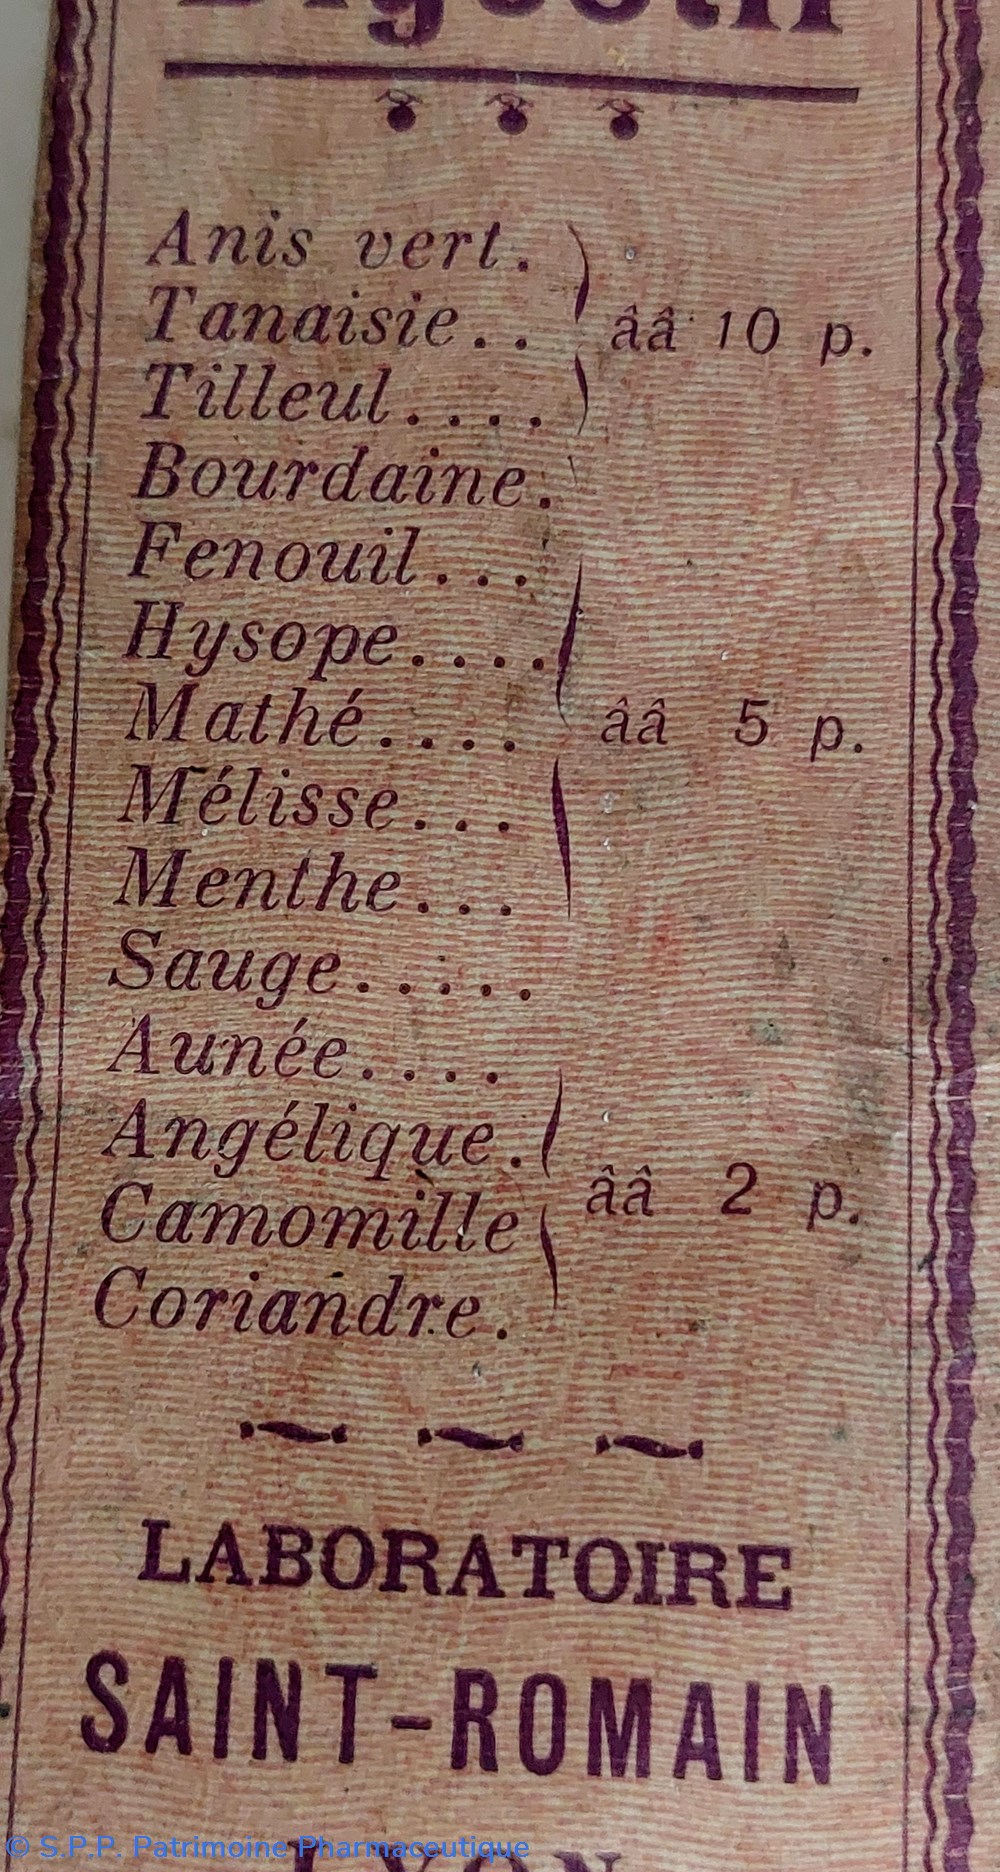 Digestif
Anis vert.
Tanaisie.. ââ 10 p.
Tilleul....
Bourdaine.
Fenouil...
Hysope....
Mathé.... ââ 5 p.
Mélisse...
Menthe...
Sauge.....
Aunée....
Angélique.
Camomille ââ 2 p.
Coriandre.
LABORATOIRE
SAINT-ROMAIN
LYON
© S.P.P. Patrimoine Pharmaceutique